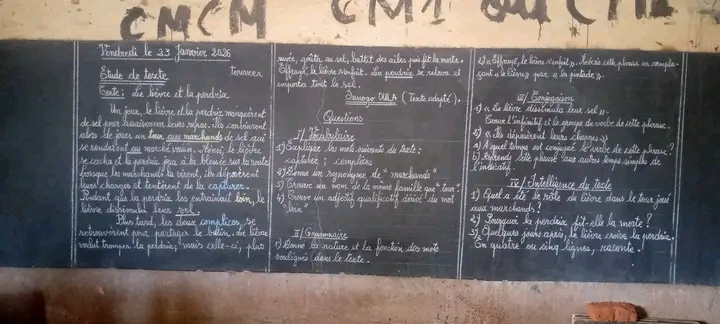 CMCM
CM1 ou CM2
Vendredi le 23 Janvier 2026
Etude de texte
tourner
Texte : Le lièvre et la perdrix
Un jour, le lièvre et la perdrix manquèrent
de sel pour assaisonner leurs repas. Ils convinrent
alors de jouer un tour aux marchands de sel qui
se rendaient au marché voisin. Ainsi, le lièvre
se cacha et la perdrix joua à la blessée sur la route
lorsque les marchands la virent, ils déposèrent
leurs charges et tentèrent de la capturer.
Pendant que la perdrix les entrainait loin, le
lièvre dissimula leur sel.
Plus tard, les deux complices se
retrouvèrent pour partager le butin. Le lièvre
voulut tromper la perdrix ; mais celle-ci, plus
rusée, goûta au sel, battit des ailes puis fit la morte.
Effrayé, le lièvre s'enfuit. La perdrix se releva et
emporta tout le sel.
Sanogo OULA (Texte adapté).
Questions
I/ Vocabulaire
1) Explique les mots suivants du texte :
capturer ; complices
2) Donne un synonyme de "marchands"
3) Trouve un nom de la même famille que "tour"
4) Trouve un adjectif qualificatif dérivé du mot
II/ Grammaire
1) Donne la nature et la fonction des mots
soulignés dans le texte.
2) « Effrayé, le lièvre s'enfuit ». Réécris cette phrase en rempla-
çant « le lièvre » par « la pintade ».
III/ Conjugaison
1) « Le lièvre dissimula leur sel ».
Trouve l'infinitif et le groupe du verbe de cette phrase.
2) « Ils déposèrent leurs charges »
a) A quel temps est conjugué le verbe de cette phrase ?
b) Reprends cette phrase aux autres temps simples de
l'indicatif.
IV/ Intelligence du texte
1) Quel a été le rôle du lièvre dans le tour joué
aux marchands ?
2) Pourquoi la perdrix fit-elle la morte ?
3) Quelques jours après, le lièvre croise la perdrix.
En quatre ou cinq lignes, raconte.